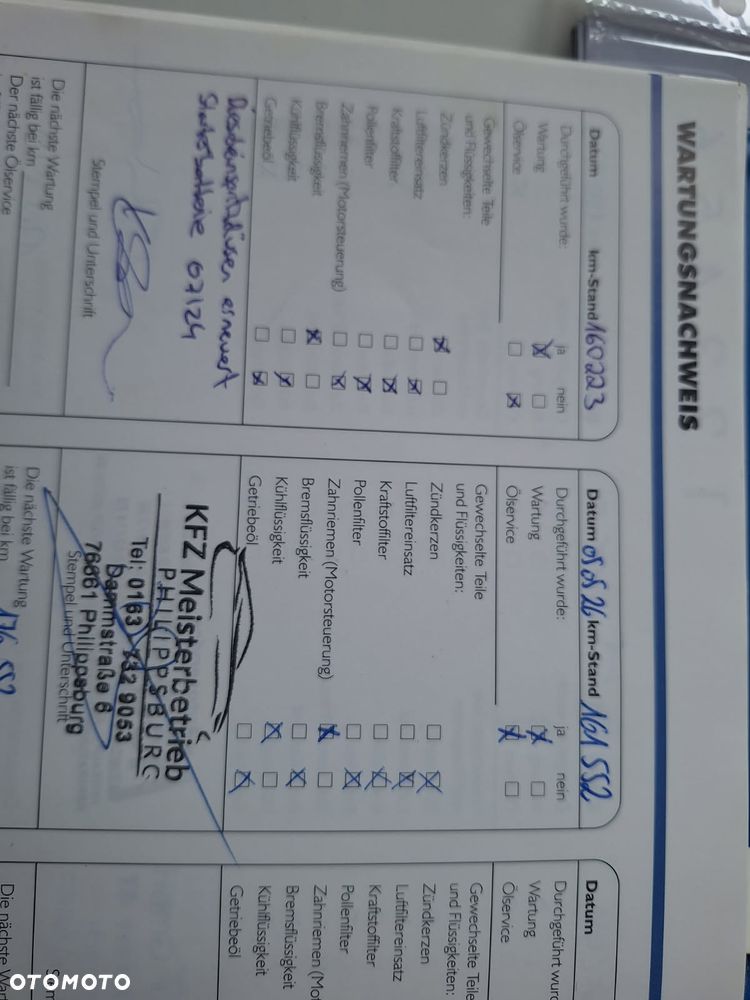 WARTUNGSNACHWEIS
Datum km-Stand 160223
Durchgeführt wurde: ja nein
Wartung
Ölservice
Gewechselte Teile
und Flüssigkeiten:
Zündkerzen
Luftfiltereinsatz
Kraftstoffilter
Pollenfilter
Zahnriemen (Motorsteuerung)
Bremsflüssigkeit
Kühlflüssigkeit
Getriebeöl
erneuert
Starterbatterie 07/24
Stempel und Unterschrift
Die nächste Wartung
ist fällig bei km
Der nächste Ölservice
Datum 05 05 26 km-Stand 161 552
Durchgeführt wurde: ja nein
Wartung
Ölservice
Gewechselte Teile
und Flüssigkeiten:
Zündkerzen
Luftfiltereinsatz
Kraftstoffilter
Pollenfilter
Zahnriemen (Motorsteuerung)
Bremsflüssigkeit
Kühlflüssigkeit
Getriebeöl
KFZ Meisterbetrieb
PHILIPPSBURG
Tel: 0163 732 9053
Dammstraße 6
76661 Philippsburg
Stempel und Unterschrift
Die nächste Wartung
ist fällig bei km 176 552
Datum
Durchgeführt wurd
Wartung
Ölservice
Gewechselte Teile
und Flüssigkeiten:
Zündkerzen
Luftfiltereinsatz
Kraftstoffilter
Pollenfilter
Zahnriemen (Mot
Bremsflüssigkeit
Kühlflüssigkeit
Getriebeöl
Die nächste War
OTOMOTO